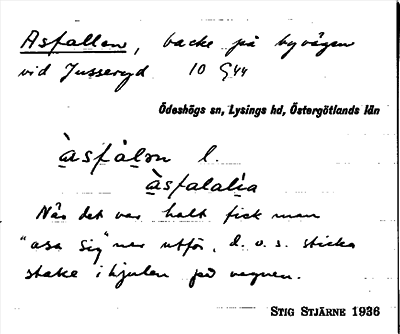 Asfallen, backe på byvägen
vid Jusseryd 10 G44
Ödeshögs sn, Lysings hd, Östergötlands län
àsfàlən l.
àsfalalìa
När det var halt fick man
"asa sig" ner utför, d. v. s. sticka
stake i hjulen på vagnen.
STIG STJÄRNE 1936